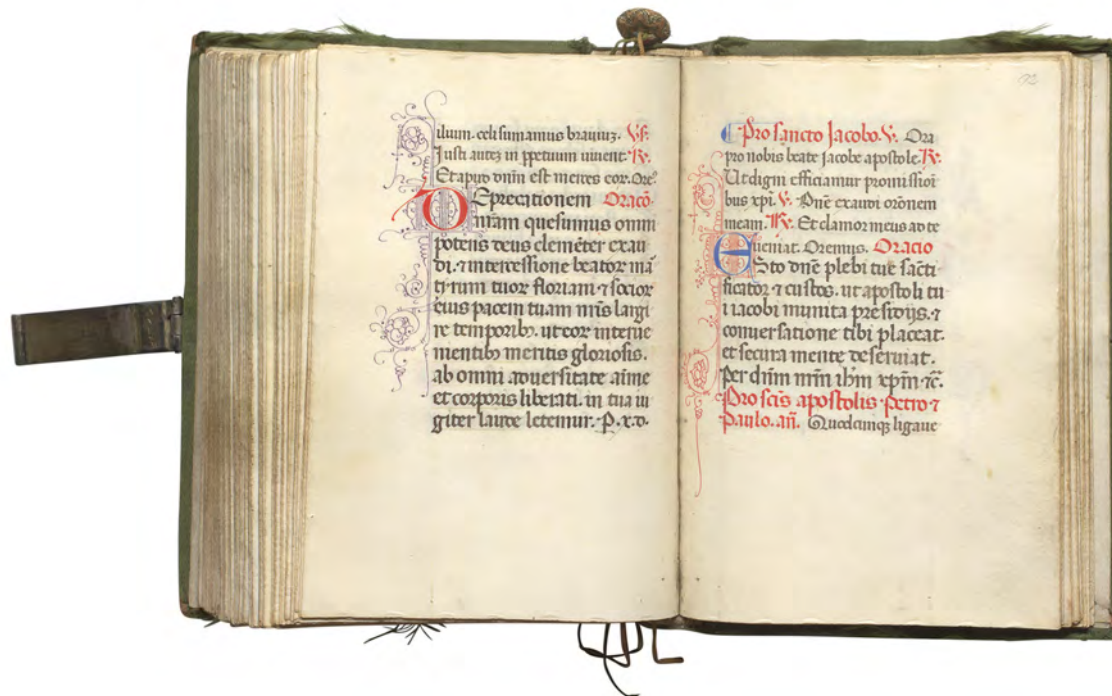 ilium. celi sumamus brauiuz. Vs.
Justi autez in ppetuum uiuent. R.
Et apud dnm est merces eor. Ore9
DEprecationem Oracō.
nr̄am quesumus omni
potens deus clemēter exau
di. ⁊ intercessione beator mā
tirum tuor floriani ⁊ socior
eius pacem tuam nr̄is largi
re temporib9. ut eor interue
nientib9 meritis gloriosis.
ab omni aduersitate aīme
et corporis liberati. in tua iu
giter laude letemur. P. x. d.
Pro sancto Jacobo. V. Ora
pro nobis beate Jacobe apostole. R.
Ut digni efficiamur promissioī
bus xpī. V. Dnē exaudi orōnem
meam. R. Et clamor meus ad te
ueniat. Oremus. Oracio
ESto dnē plebi tue sācti
ficator ⁊ custos. ut apostoli tu
i iacobi munita presidijs. ⁊
conuersatione tibi placeat.
et secura mente deseruiat.
Per dn̄m nr̄m ih̄m xp̄m ⁊c̄.
Pro scīs apostolis Petro ⁊
Paulo. an̄. Quodcunqz ligaue